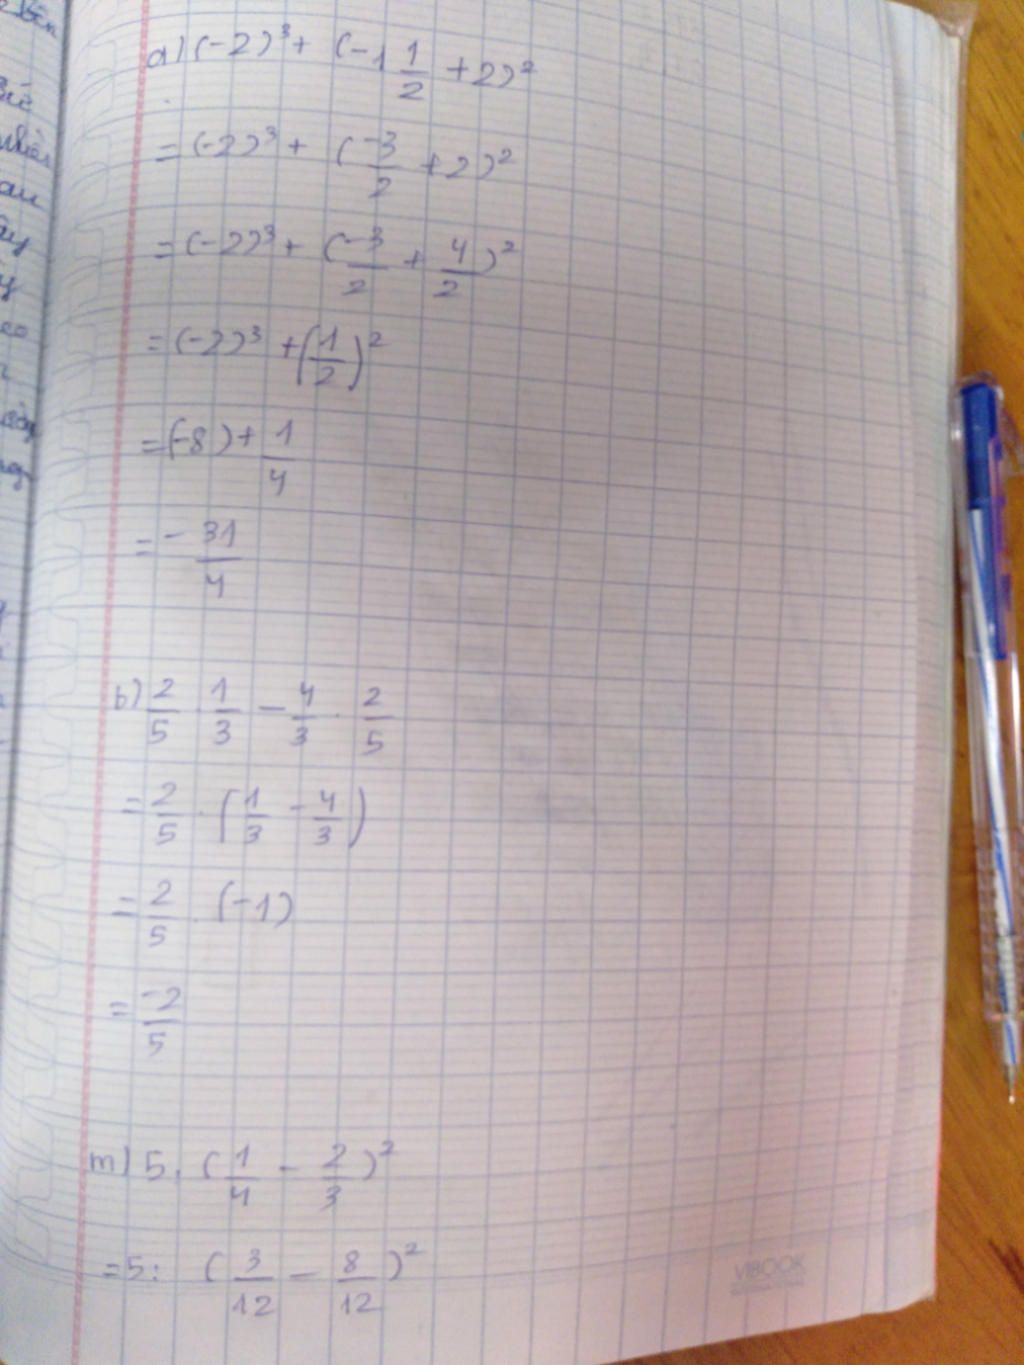 a) (-2)³ + (-1 1/2 + 2)²
= (-2)³ + (-3/2 + 2)²
= (-2)³ + (-3/2 + 4/2)²
= (-2)³ + (1/2)²
= (-8) + 1/4
= - 31/4
b) 2/5 . 1/3 - 4/3 . 2/5
= 2/5 . (1/3 - 4/3)
= 2/5 . (-1)
= -2/5
m) 5 . (1/4 - 2/3)²
= 5 : (3/12 - 8/12)²
VIBOOK